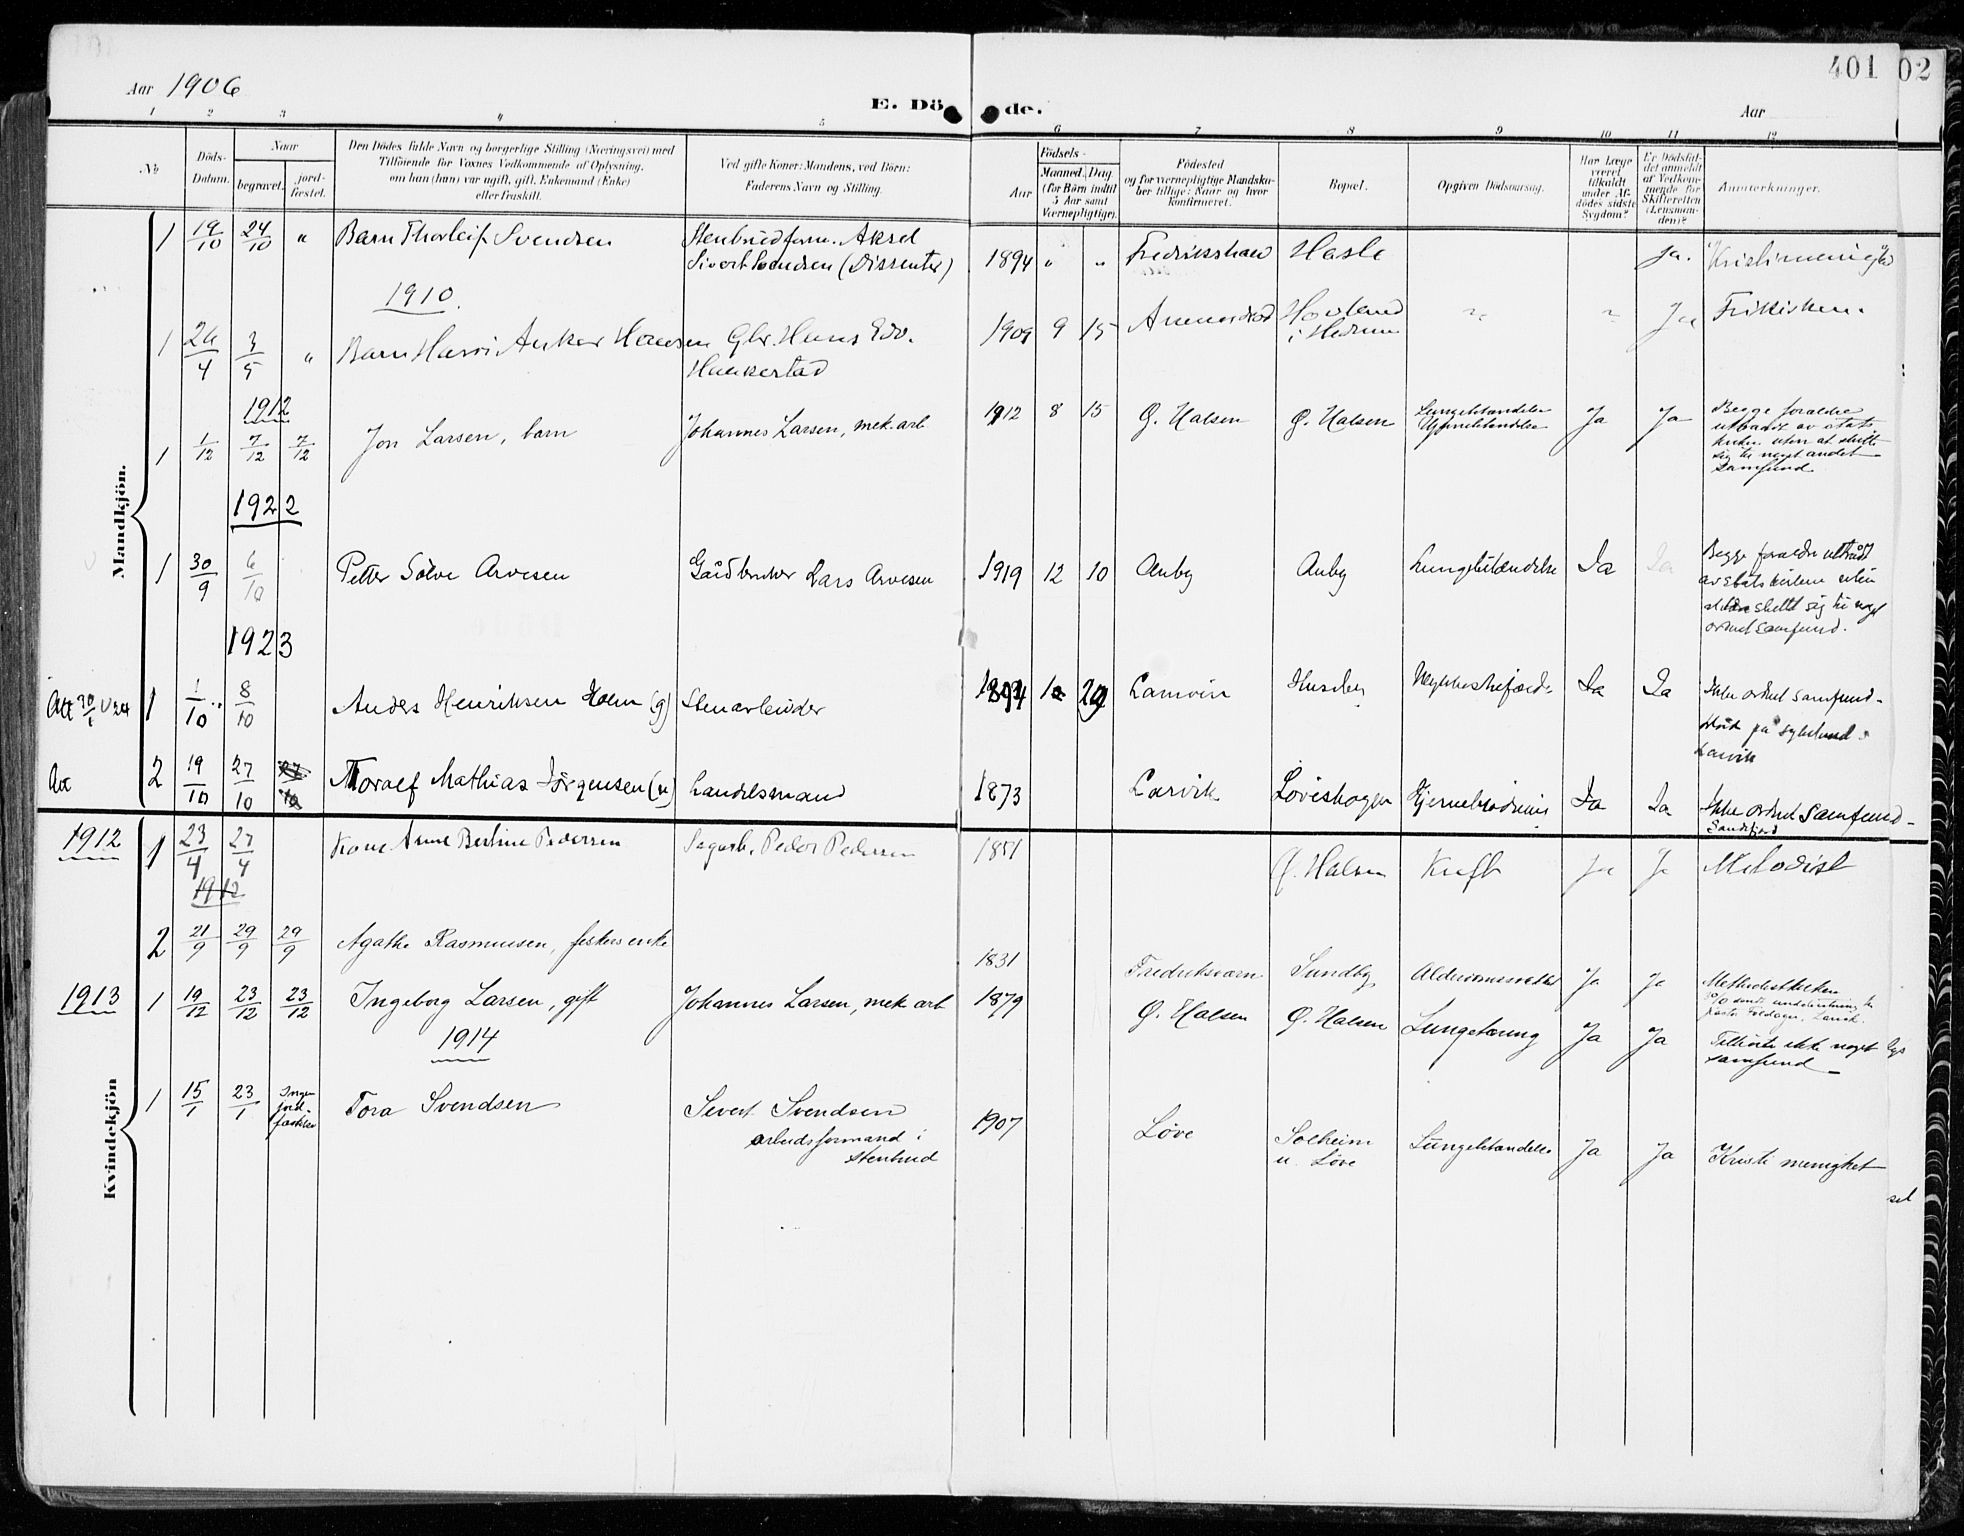 401
02
Aar 1906
E. Döde.
Aar
1 2 3 4 5 6 7 8 9 10 11 12
No
Döds-Datum.
Naar
begravet.
jord-fæstet.
Den Dödes fulde Navn og borgerlige Stilling (Næringsvei) med
Tilföiende for Voxnes Vedkommende af Oplysning,
om han (hun) var ugift, gift, Enkemand (Enke)
eller fraskilt.
Ved gifte Koner: Mandens, ved Börn:
Faderens Navn og Stilling.
Födsels-
Aar
Maaned. Dag.
(for Börn indtil
5 Aar samt
Værnepligtige).
Födested
og for værnepligtige Mandska-
ber tillige: Naar og hvor
konfirmeret.
Bopæl.
Opgiven Dödsaarsag.
Har Læge
været
tilkaldt
under Af-
dödes sidste
Sygdom?
Er Dödsfal-
det anmeldt
af Vedkom-
mende for
Skifteretten
(Lensman-
den)?
Anmærkninger.
Mandkjön.
1 19/10 24/10 " Barn Thorleif Svendsen Stenbrudform. Aksel
Sivert Svendsen (Dissenter) 1894 " " Fredrikshald Hasle Ja. Kristi menighed
1910.
1 26/4 3/5 " Barn Harri Anker Hansen Gbr. Hans Edv.
Haukerstad 1909 9 15 Hovland
i Hedrum " " Ja Frikirken.
1912
1 1/12 7/12 7/12 Jon Larsen, barn Johannes Larsen, mek. arb 1912 8 15 Ø. Halsen Ø. Halsen Lungebetændelse
Hjernebetændelse Ja Ja Begge forældre
uttraadt av stats
kirken uten at slutte
sig til noget andet
samfund
1922
1 30/9 6/10 Petter Sölve Arvesen Gårdbruker Lars Arvesen 1919 12 10 Auby Auby Lungebetændelse Ja Ja Begge forældre uttrådt
av statskirken uten
at ha sluttet sig til noget
ordnet samfund.
1923
Att 30/1 1924 1 1/10 8/10 Anders Henriksen Holm (g) Stenarbeider 10 29 Ja Ja Ikke ordnet samfund.
død på sykehuset i
Larvik
2 19/10 27/10 27/10 Toralf Mathias Jörgensen (u) Handelsmand 1873 Larvik Løveskogen Ja Ja Ikke ordnet samfund.
Sandefjord
Kvindekjön
1912 1 23/4 27/4 Kone Anne Bertine Pedersen Sagarb. Peder Pedersen 1851 Ø. Halsen Kræft Ja Ja Metodist
1912
2 21/9 29/9 29/9 Agathe Rasmussen, fiskers enke 1831 Fredriksværn Sundby Alderdomssvækkelse Ja Ja Methodistkirken
1913 1 19/12 23/12 23/12 Ingeborg Larsen, gift Johannes Larsen, mek. arb 1879 Ø. Halsen Ø. Halsen Lungetæring Ja Ja Tilhörte ikke noget
samfund
1914
1 15/1 23/1 Ingen
jord-
fæstelse Tora Svendsen Severt Svendsen
arbeidsformand i
stenbrud 1907 Løve Solheim
u. Løve Lungebetændelse Ja Ja Kristi menighet